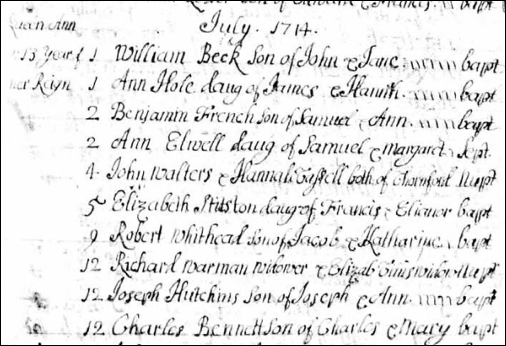 July. 1714.
Queen Ann
13 Year of 1 William Beck Son of John & Jane bapt
her Reign 1 Ann Hole daug of James & Hannh. bapt
2 Benjamin French Son of Samuel & Ann. bapt
2 Ann Elwell daug of Samuel & margaret Sept.
4 John Walters & Hannah both of Nupt
5 Elizabeth Stitston daug of Francis & Elianor bapt
9 Robert Whithead Son of Jacob & Katharine bapt
12 Richard Warman Widower & Elizab Widow Nupt
12 Joseph Hutchins Son of Joseph & Ann. bapt
12 Charles Bennett Son of Charles & Mary bapt